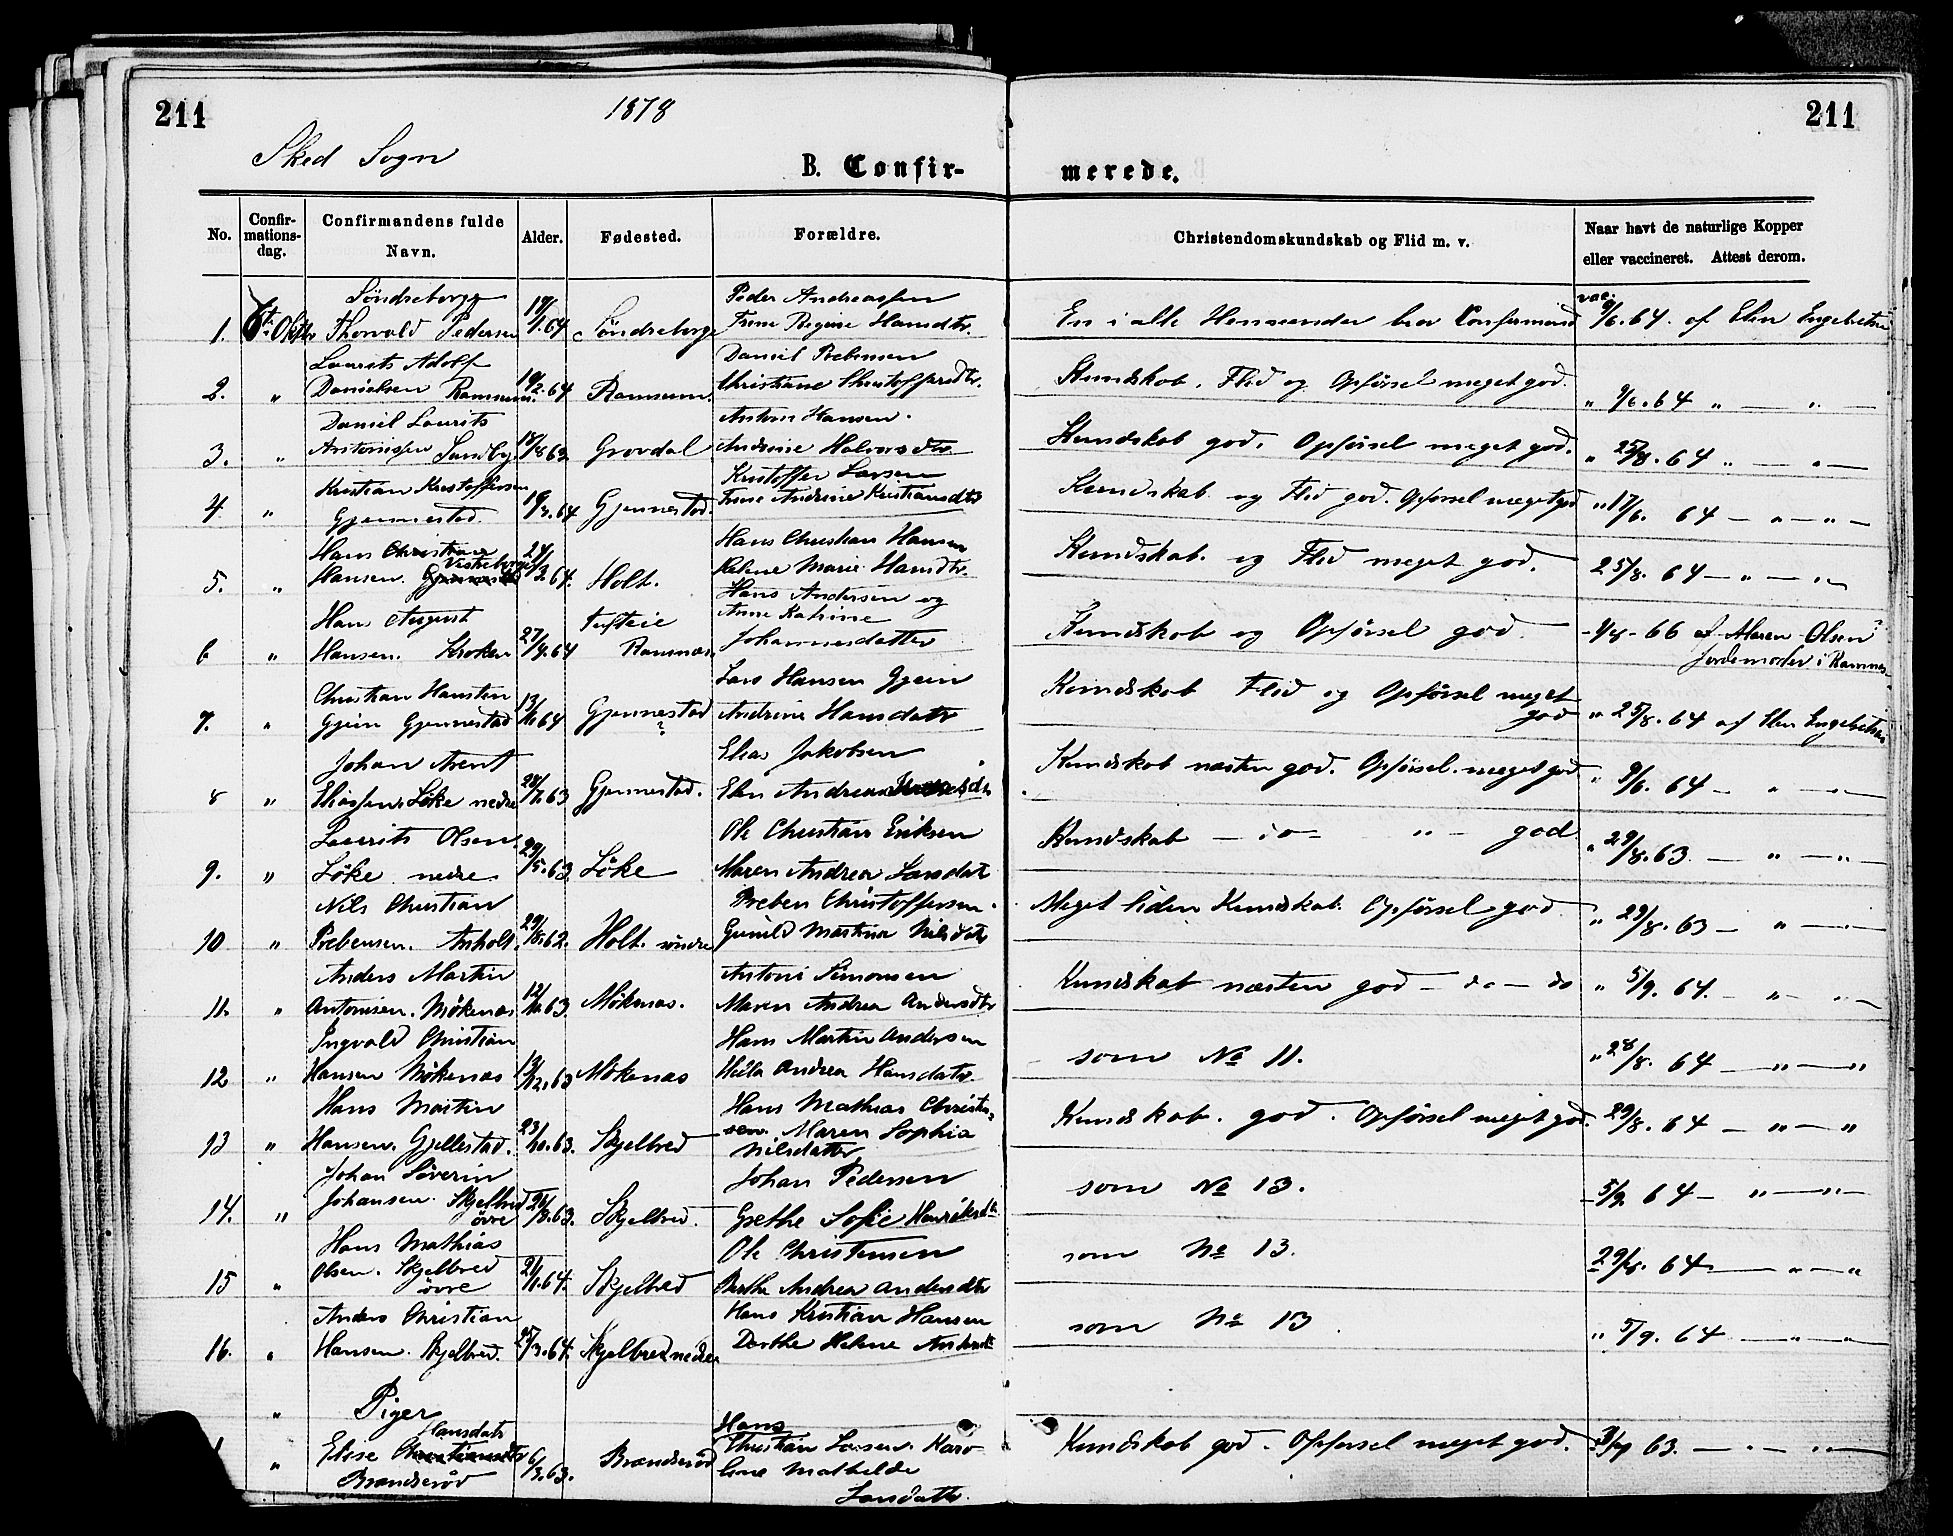 211
1878
211
Sked Sogn
B. Confir-
merede.
No.
Confir-
mations-
dag.
Confirmandens fulde
Navn.
Alder.
Fødested.
Forældre.
Christendomskundskab og Flid m. v.
Naar havt de naturlige Kopper
eller vaccineret. Attest derom.
Søndreborge Peder Andreassen vac.
1. 6te Oktbr Thorvald Pedersen 19/1.64 Søndreborge Trine Regine Hansdtr. En i alle Henseender bra Confirmand 9/6.64. af Elen Engebretsen
Laurits Adolf Daniel Prebensen
2. " Danielsen Ramsum. 10/2.64 Ramsum. Christiane Christoffersdtr. Kundskab, Flid og Opførsel meget god. " 9/6.64 " — " —
Daniel Laurits Anton Hansen.
3. " Antonisen Sundby. 18/8.63. Grovdal Andrine Halvorsdtr. Kundskab god. Opførsel meget god. " 25/8.64 " — " —
Kristian Kristoffersen Kristoffer Larsen
4. " Gjennestad. 19/3.64 Gjennestad. Trine Andrine Kristiansdtr Kundskab og Flid god. Opførsel meget god " 17/6. 64 — " — " —
Hans Christian Hans Christian Hansen
5. " Hansen. 24/3.64. Holt. Helene Marie Hansdtr. Kundskab og Flid meget god. 25/8. 64 — " — " —
Hans August Hans Andersen og
Anne Katrine
6 " Hansen. Kroken 27/4.64 Ramnæs. Johannesdatter Kundskab og Opførsel god. 1/8 - 66 af Maren Olsen
Jordemoder i Ramnes
Christian Hansten Lars Hansen Gjein
7. " Gjein Gjennestad 64 Gjennestad ? Andrine Hansdatr Kundskab Flid og Opførsel meget
god " 25/8.64 af Elen Engebretsen
Johan Arent Elias Jakobsen
8 " Eliassen. Løke nedre 63 Gjennestad. Elen Andrea Kundskab næsten god. Opførsel meget god " 9/6. 64 — " —
Laurits Olsen Ole Christian Eriksen
9. " Løke nedre. 29/5.63. Løke Maren Andrea Larsdatr Kundskab — do — " — god " 29/8.63 — " — " —
Nils Christian Preben Christoffersen.
10 " Prebensen. Anholt. 29/8.62. Holt søndre Gunild Martina Nilsdatr Meget liden Kundskab. Opførsel god. " 29/8.63 — " —
Anders Martin Antoni Simonsen
11. " Antonisen. Møkenæs 63. Møkenæs. Maren Andrea Andersdtr Kundskab næsten god — do — do " 5/9. 64. — " — " —
Ingvald Christian Hans Martin Andersen
12 " Hansen Møkenæs 13/12.63 Møkenæs Andrea Hansdatr. som No 11. " 28/8. 64 — " — "
Hans Martin Hans Mathias Christen=
13 " Hansen. Gjellestad. 23/10.63. Skjelbred sen. Maren Sophia
Nilsdatter Kundskab. god. Opførsel meget god. 29/8. 64 — " — "
Johan Severin Johan Pedersen
14. " Johansen. Skjelbred
øvre 26/8.63. Skjelbred. Grethe Sofie Henriksdtr som No 13. 5/9 64 — " — " —
Hans Mathias Ole Christensen
15 " Olsen. Skjelbred
øvre 21/1.64. Skjelbred Berthe Andrea Andersdtr som No 13. 29/8. 64 — " — "
Anders Christian Hans Kristian Hansen
16. " Hansen. Skjelbred. 25/3.64. Skjelbred nedre Dorthe Helene som No 13 " 5/9. 64 — " — "
" Piger
Hansdatr Hans
" Elise
Brændserød 6/3.63. Brændserød Christian Larsen. Karo-
line Mathilde
Larsdatr. Kundskab god. Opførsel meget god. 63. — " — " —